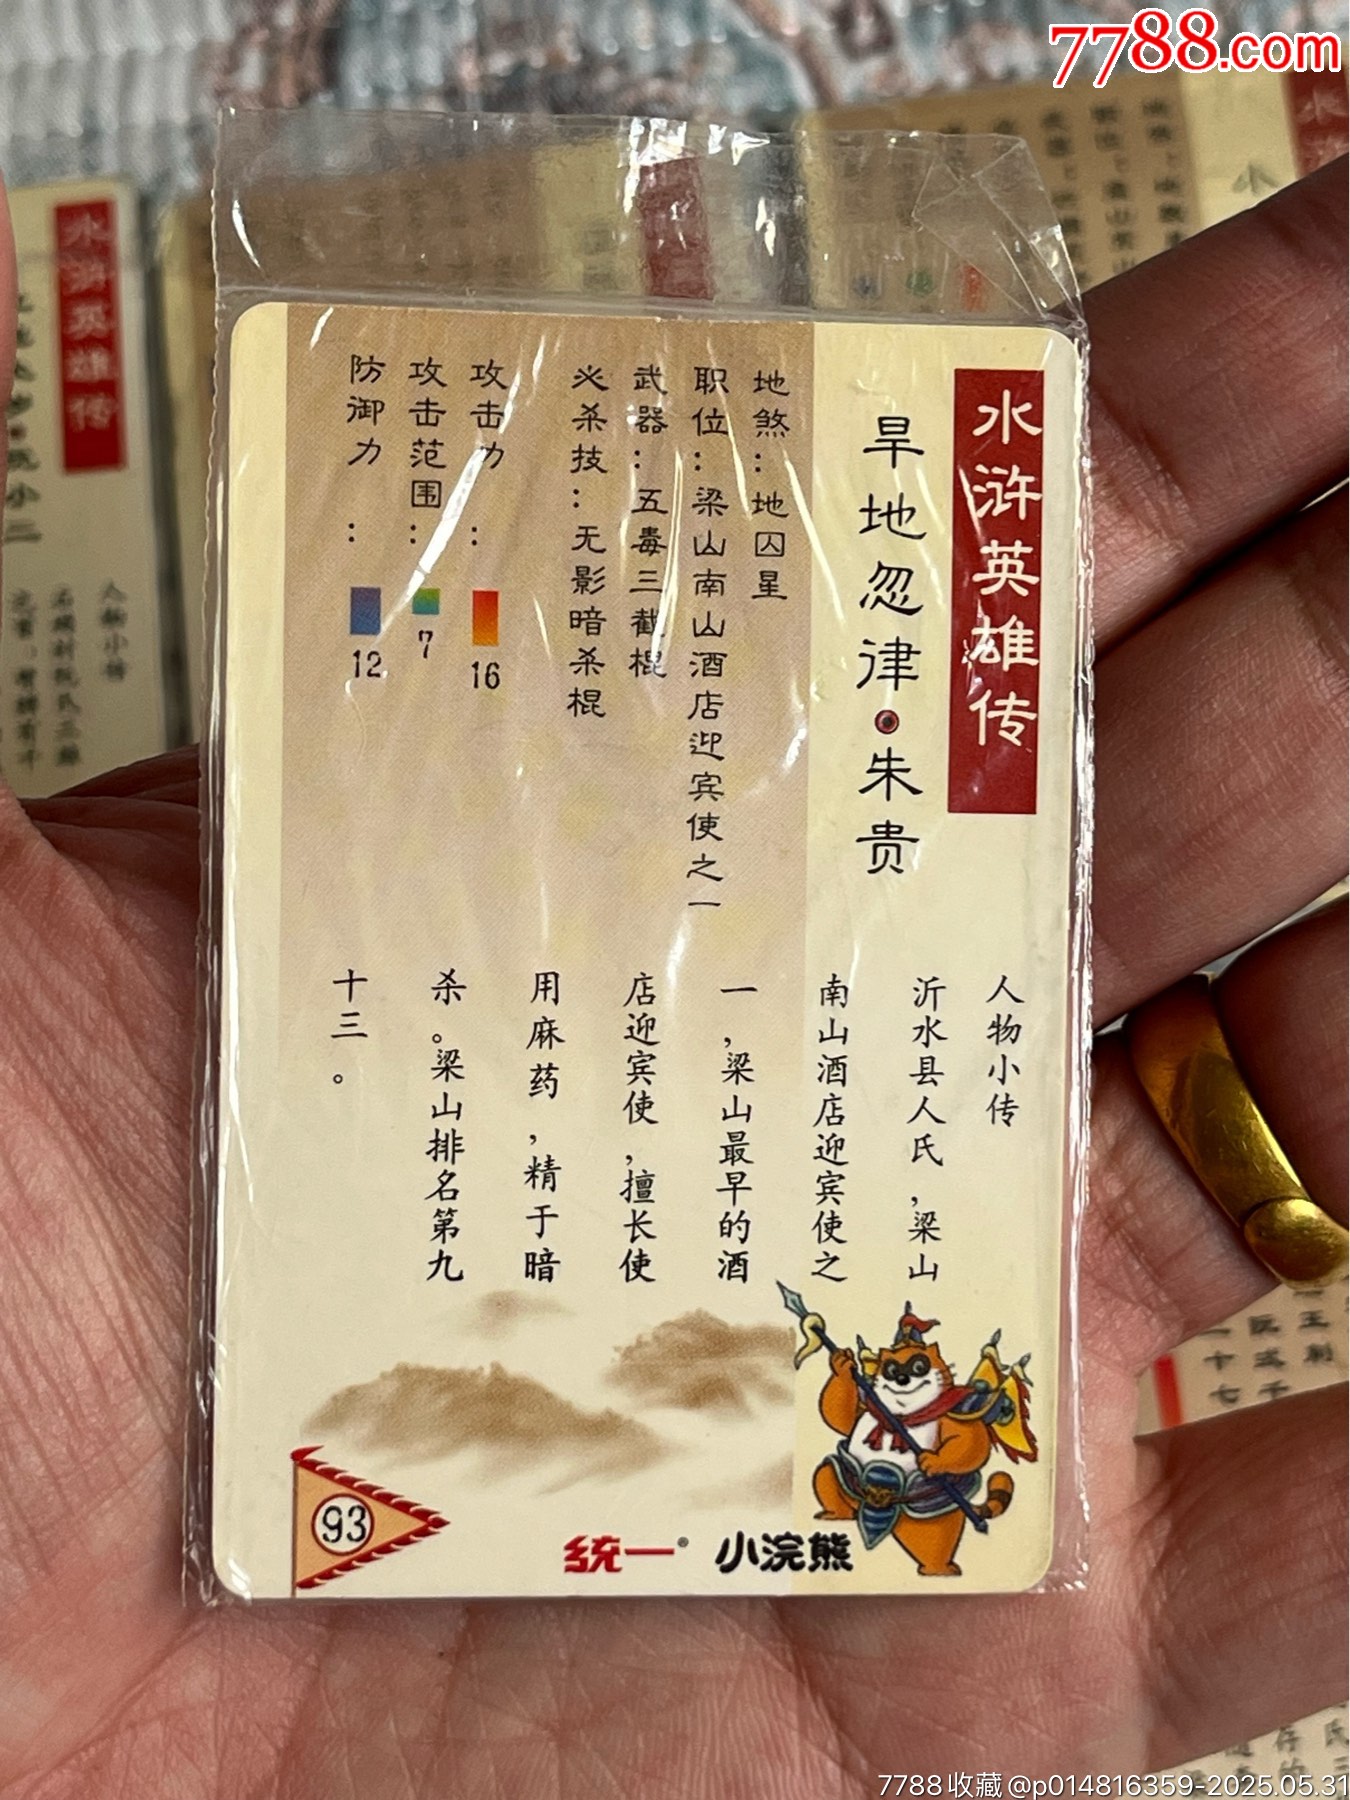 7788.com
水浒英雄传
旱地忽律·朱贵
地煞：地囚星
职位：梁山南山酒店迎宾使之一
武器：五毒三截棍
必杀技：无影暗杀棍
攻击力：16
攻击范围：7
防御力：12
人物小传
沂水县人氏，梁山
南山酒店迎宾使之
一，梁山最早的酒
店迎宾使，擅长使
用麻药，精于暗
杀。梁山排名第九
十三。
93
统一® 小浣熊
水浒英雄传
小二
人物小传
7788收藏@p014816359-2025.05.31